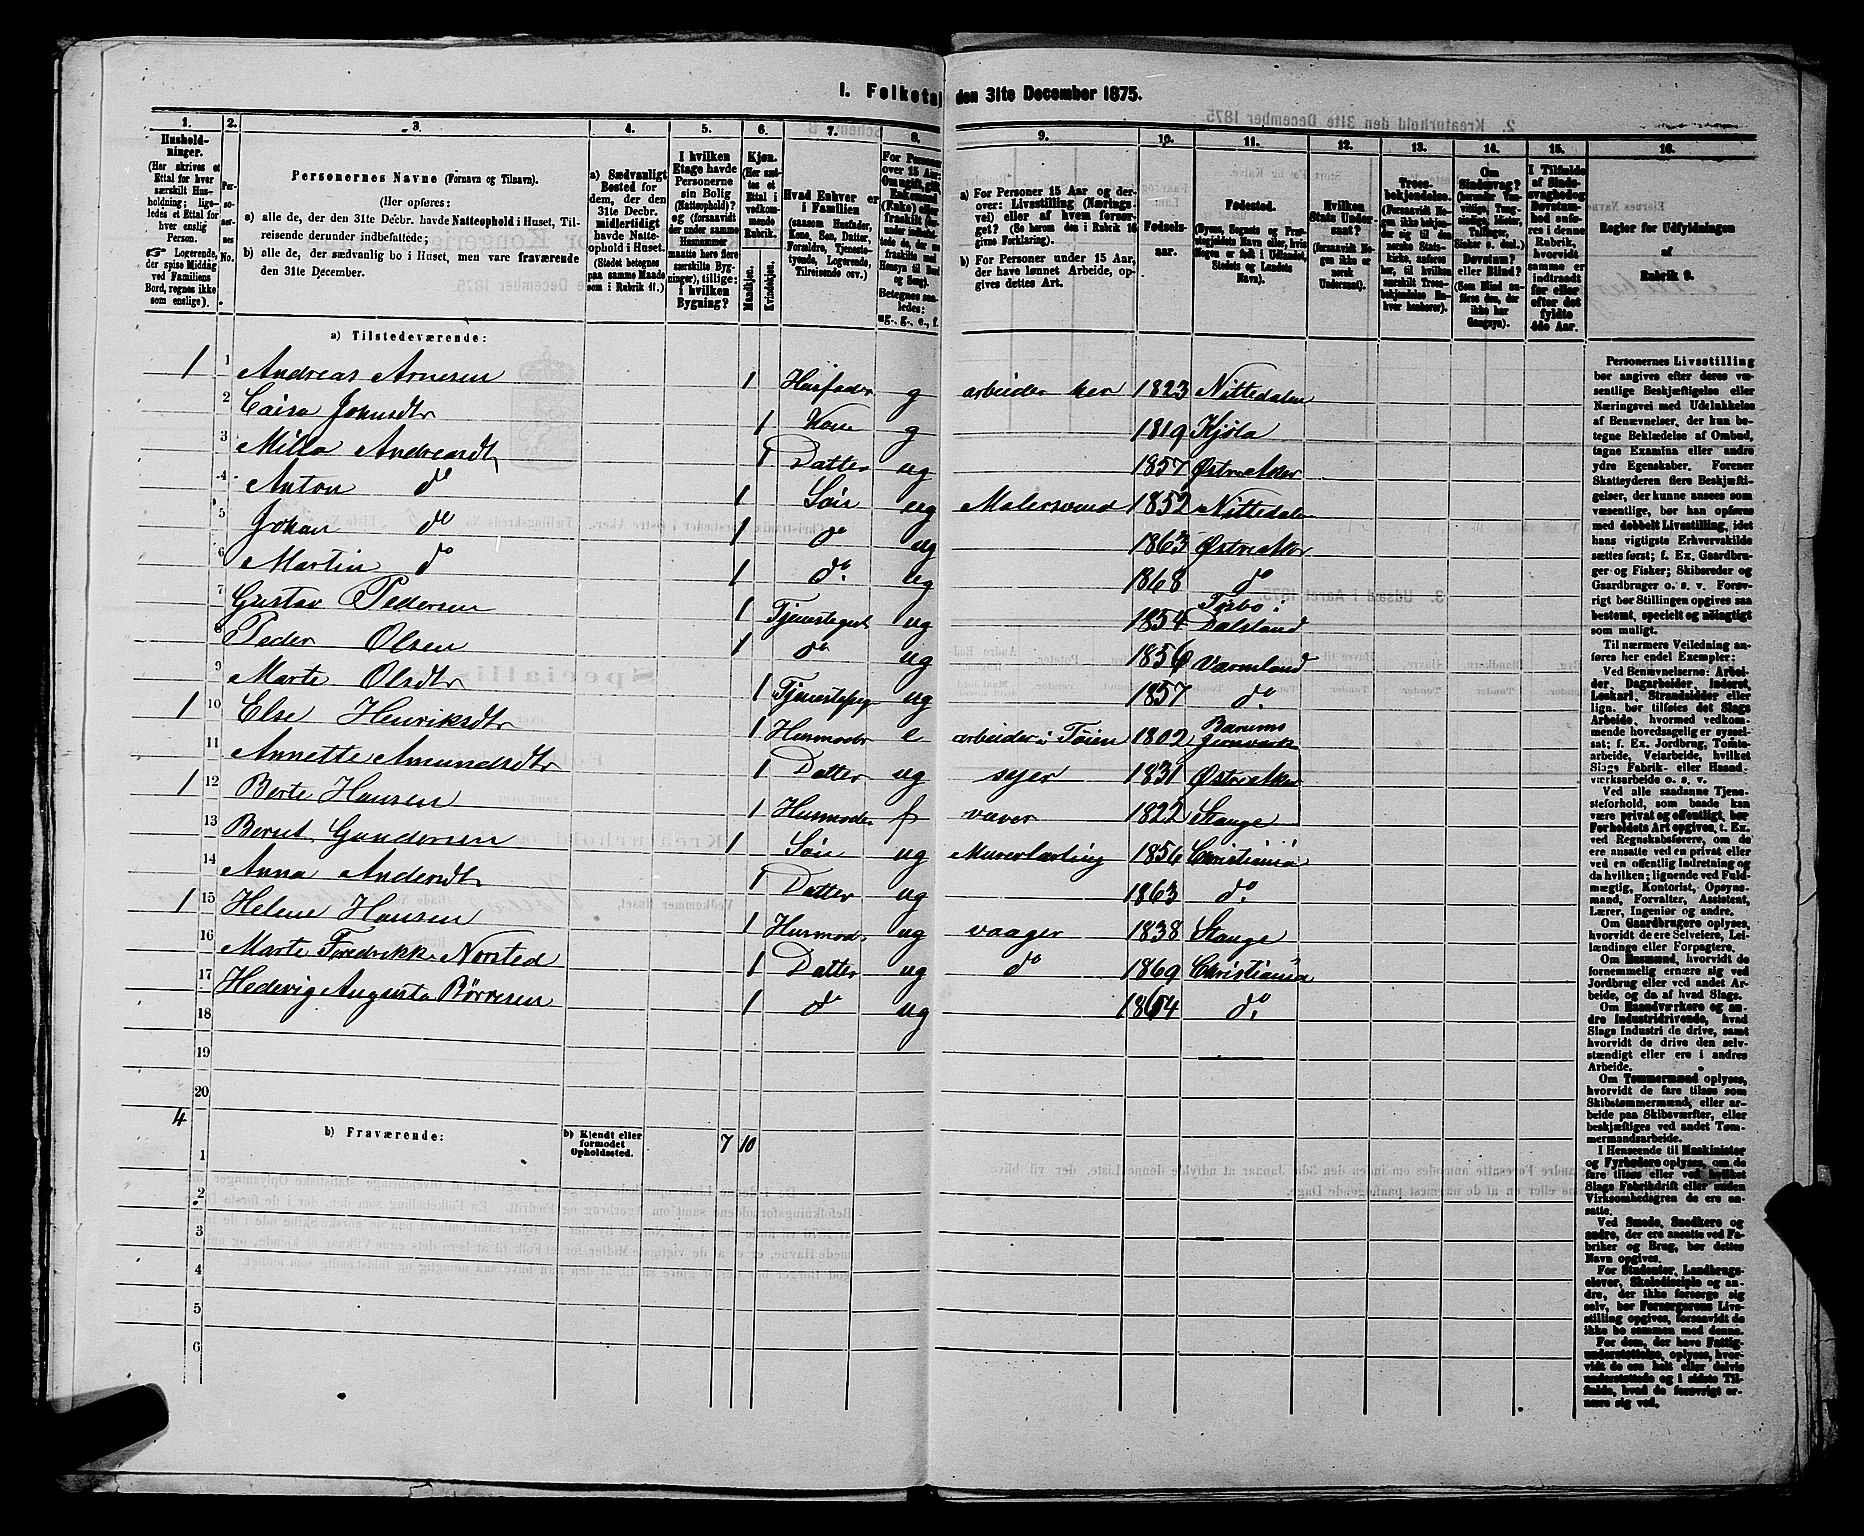 I. Folketal den 31te December 1875.
1. 2. 3. 4. 5. 6. 7. 8. 9. 10. 11. 12. 13. 14. 15. 16.
Hushold-
ninger.
(Her skrives et
Ettal for hver
særskilt Hus-
holdning; lige-
ledes et Ettal for
hver enslig
Person.
Logerende,
der spise Middag
ved Familiens
Bord, regnes ikke
som enslige).
Per-
soner-
nes
No.
Personernes Navne (Fornavn og Tilnavn).
(Her opføres:
a) alle de, der den 31te Decbr. havde Natteophold i Huset, Til-
reisende derunder indbefattede;
b) alle de, der sædvanlig bo i Huset, men vare fraværende
den 31te December.
a) Sædvanligt
Bosted for
dem, der den
31te Decbr.
midlertidigt
havde Natte-
ophold i Huset.
(Stedet betegnes
paa samme Maade
som i Rubrik 11.)
I hvilken
Etage havde
Personerne
sin Bolig
(Natteophold)?
og (forsaavidt
der under samme
Husnummer
maatte høre flere
særskilte Byg-
ninger), tillige:
i hvilken
Bygning?
Kjøn.
(Her sæt-
tes et
Ettal i
vedkom-
mende
Rubrik.
Mandkjøn.
Kvindekjøn.
Hvad Enhver er
i Familien
(saasom Husfader,
Kone, Søn, Datter,
Forældre, Tjeneste-
tyende, Logerende,
Tilreisende osv.)
For Personer
over 15 Aar:
Om ugift, gift,
Enkemand
(Enke) eller
fraskilt
Betegnes saa-
ledes:
ug., g., e., f.
a) For Personer 15 Aar og der-
over: Livsstilling (Nærings-
vei) eller af hvem forsør-
get? (Se herom den i Rubrik 16
givne Forklaring).
b) For Personer under 15 Aar,
der have lønnet Arbeide, op-
gives dettes Art.
Fødsels-
aar.
Fødested.
(Byens, Sognets og Præ-
stegjeldets Navn eller, hvis
Nogen er født i Udlandet,
Stedets og Landets
Navn).
Hvilken
Stats Under-
saat?
(forsaavidt No-
gen ikke er
norsk
Undersaat).
Troes-
bekjendelse.
(Forsaavidt No-
gen ikke beken-
der sig til den
norske Stats-
kirke, anfø-
res, til hvilken
særskilt Troes-
bekjendelse En-
hver henhører).
Om
Sindssvag?
Døvstum?
eller Blind?
I Tilfælde
af Sinds-
svaghed og
Døvstum-
hed anfø-
res i denne
Rubrik,
hvorvidt
samme er
indtraadt
før eller
efter det
fyldte
4de Aar.
Regler for Udfyldningen
af
Rubrik 9.
a) Tilstedeværende:
1 1 Andreas Arnesen 1 Husfader g arbeider her 1823 Nittedalen
2 Caisa Johnsdtr 1 Kone g 1819 Kjøla
3 Milla Andreasdt 1 Datter ug 1857 Østre Aker
4 Anton do 1 Søn ug Malersvend 1852 Nittedalen
5 Johan do 1 do ug 1863 Østre Aker
6 Martin do 1 do. ug 1868 do
7 Gustav Pedersen 1 ug 1854 i Dalsland
8 Peder Olsen 1 do ug 1856 Varmland
9 Marte Olsdtr 1 ug 1857 do.
1 10 Else Henriksdtr 1 Husmoder e arbeider i Tøien 1802 Bærums Jernværk
11 Annette Amundsdtr 1 Datter ug syer 1831 Østre Aker
1 12 Berte Hansen 1 Husmoder f væver 1822 Stange
13 Bernt Gundersen 1 Søn ug Murerlærling 1856 Christiania
14 Anna Andersdt 1 Datter ug 1863 do.
1 15 Helene Hansen 1 Husmodr ug vaager 1838 Stange
16 Marte Fredrikke Norsted 1 Datter ug do 1869 Christiania
17 Hedevig Augusta Børresen 1 do ug 1864 do.
18
19
20
4 7 10
b) Fraværende:
b) Kjendt eller
formodet
Opholdssted.
1
2
3
4
5
6
Personernes Livsstilling
bør angives efter deres væ-
sentlige Beskjæftigelse eller
Næringsvei med Udelukkelse
af Benævnelser, der kun be-
tegne Beklædelse af Ombud,
tagne Examina eller andre
ydre Egenskaber. Forener
Skatteyderen flere Beskjæfti-
gelser, der kunne ansees som
væsentlige, bør han opføres
med dobbelt Livsstilling, idet
hans vigtigste Erhvervskilde
sættes først; f. Ex. Gaardbru-
ger og Fisker; Skibsreder og
Gaardbruger o. s. v. Forøv-
rigt bør Stillingen opgives saa
bestemt, specielt og nøiagtigt
som muligt.
Til nærmere Veiledning an-
føres her endel Exempler:
Ved Benævnelserne: Arbei-
der, Dagarbeider, Inderst,
Løskarl, Strandsidder eller
lign. bør tilføies det Slags
Arbeide, hvormed vedkom-
mende hovedsagelig er syssel-
sat; f. Ex. Jordbrug, Tomte-
arbeide, Veiarbeide, hvilket
Slags Fabrik- eller Haand-
værksarbeide o. s. v.
Ved alle saadanne Tjene-
steforhold, som baade kan
være privat og offentligt, bør
Forholdets Art opgives, f. Ex.
ved Regnskabsførere, om de
ere ansatte ved en privat eller
ved en offentlig Indretning og
da hvilken; lignende ved Fuld-
mægtig, Kontorist, Opsyns-
mand, Forvalter, Assistent,
Lærer, Ingeniør og andre.
Om Gaardbrugere oplyses,
hvorvidt de ere Selveiere, Lei-
lændinge eller Forpagtere.
Om Husmænd, hvorvidt de
fornemmelig ernære sig ved
Jordbrug eller ved andet Ar-
beide, og da af hvad Slags.
Om Haandværkere og an-
dre Industridrivende, hvad
Slags Industri de drive, samt
hvorvidt de drive den selv-
stændigt eller ere i andres
Arbeide.
Om Tømmermænd oplyses,
hvorvidt de fare tilsøs som
Skibstømmermænd, eller ar-
beide paa Skibsværfter, eller
beskjæftiges ved andet Tøm-
mermandsarbeide.
I Henseende til Maskinister
og Fyrbødere oplyses, om de
fare tilsøs eller ved hvilket
Slags Fabrikdrift eller anden
Virksomhedsgren de ere an-
satte.
Ved Smede, Snedkere og
andre, der ere ansatte ved Fa-
briker og Brug, bør dettes
Navn opgives.
For Studenter, Landbrugs-
elever, Skoledisciple og an-
dre, der ikke forsørge sig
selv, bør Forsørgerens Livs-
stilling opgives, forsaavidt de
ikke bo sammen med denne.
For dem, der have Fattig-
understøttelse, oplyses, hvor-
vidt de ere helt eller delvis
understøttede og i sidste Til-
fælde, hvad de forøvrigt er-
nære sig ved.